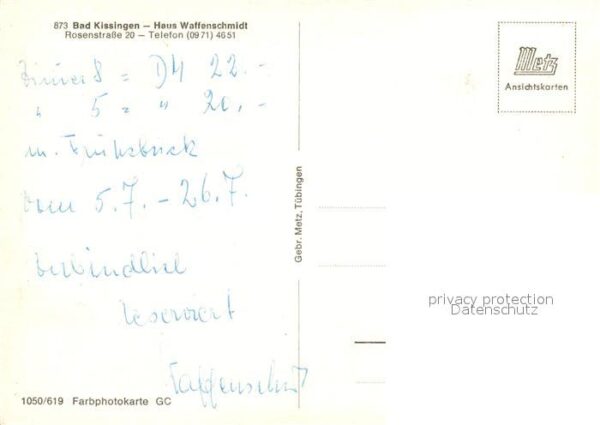 873 Bad Kissingen — Haus Waffenschmidt
Rosenstraße 20 — Telefon (0971) 4651
Zimmer 8 = DM 22.-
" 5 = " 20,-
m. Frühstück
vom 5.7. - 26.7.
verbindlich
reserviert
Waffenschmidt
Gebr. Metz, Tübingen
Metz
Ansichtskarten
privacy protection
Datenschutz
1050/619 Farbphotokarte GC